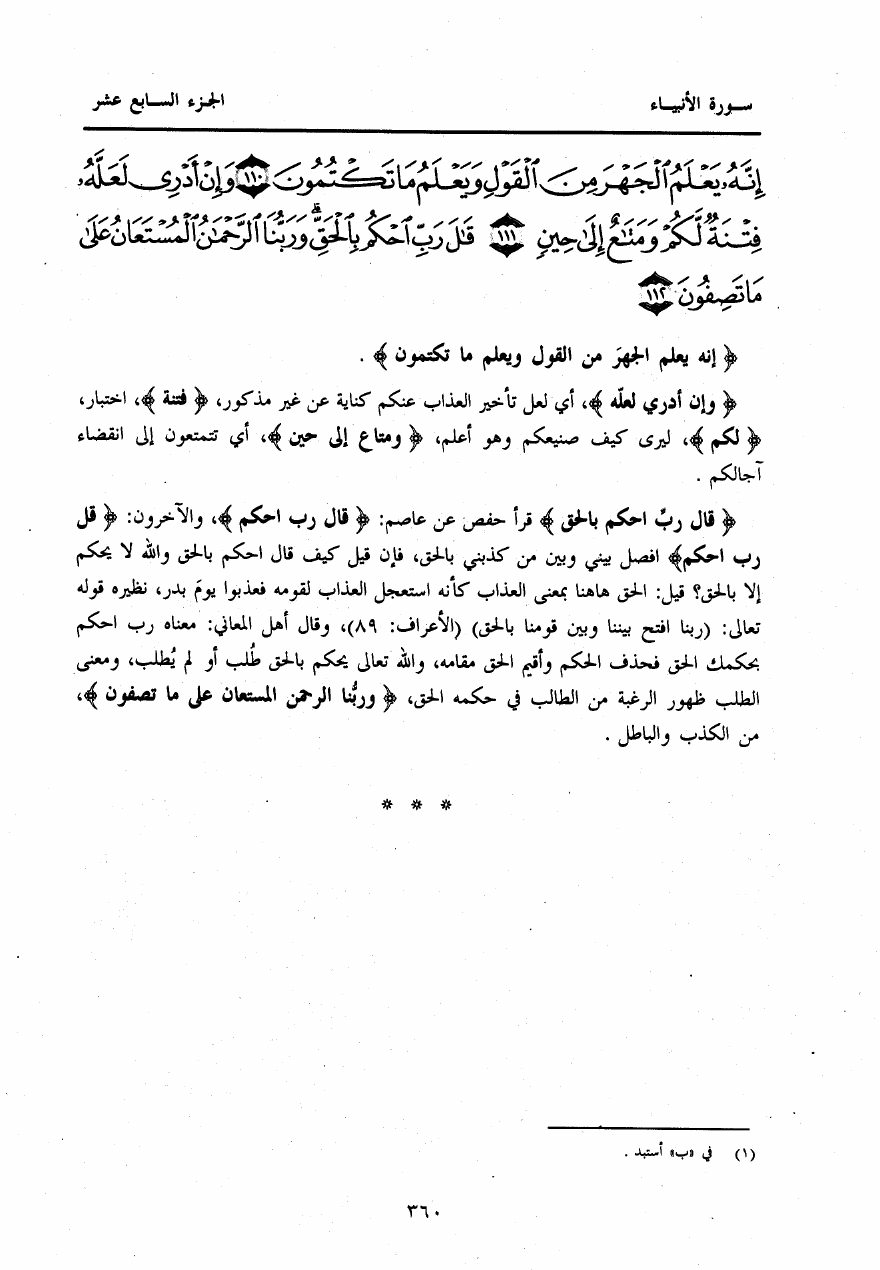 سورة الأنبياء الجزء السابع عشر
إِنَّهُۥ يَعْلَمُ ٱلْجَهْرَ مِنَ ٱلْقَوْلِ وَيَعْلَمُ مَا تَكْتُمُونَ ١١٠ وَإِنْ أَدْرِى لَعَلَّهُۥ
فِتْنَةٌ لَّكُمْ وَمَتَٰعٌ إِلَىٰ حِينٍ ١١١ قَٰلَ رَبِّ ٱحْكُم بِٱلْحَقِّ ۗ وَرَبُّنَا ٱلرَّحْمَٰنُ ٱلْمُسْتَعَانُ عَلَىٰ
مَا تَصِفُونَ ١١٢
﴿ إنه يعلم الجهرَ من القول ويعلم ما تكتمون ﴾ .
﴿ وإن أدري لعلّه ﴾، أي لعل تأخير العذاب عنكم كناية عن غير مذكور، ﴿ فتنة ﴾، اختبار،
﴿ لكم ﴾، ليرى كيف صنيعكم وهو أعلم، ﴿ ومتاع إلى حين ﴾، أي تتمتعون إلى انقضاء
آجالكم .
﴿ قال ربِّ احكم بالحق ﴾ قرأ حفص عن عاصم: ﴿ قال رب احكم ﴾، والآخرون: ﴿ قل
رب احكم﴾ افصل بيني وبين من كذبني بالحق، فإن قيل كيف قال احكم بالحق والله لا يحكم
إلا بالحق؟ قيل: الحق هاهنا بمعنى العذاب كأنه استعجل العذاب لقومه فعذبوا يومَ بدر، نظيره قوله
تعالى: (ربنا افتح بيننا وبين قومنا بالحق) (الأعراف: ٨٩)، وقال أهل المعاني: معناه رب احكم
بحكمك الحق فحذف الحكم وأقيم الحق مقامه، والله تعالى يحكم بالحق طُلب أو لم يُطلب، ومعنى
الطلب ظهور الرغبة من الطالب في حكمه الحق، ﴿ وربُّنا الرحمن المستعان على ما تصفون ﴾،
من الكذب والباطل .
* * *
(١) في «ب» أستبد .
٣٦٠